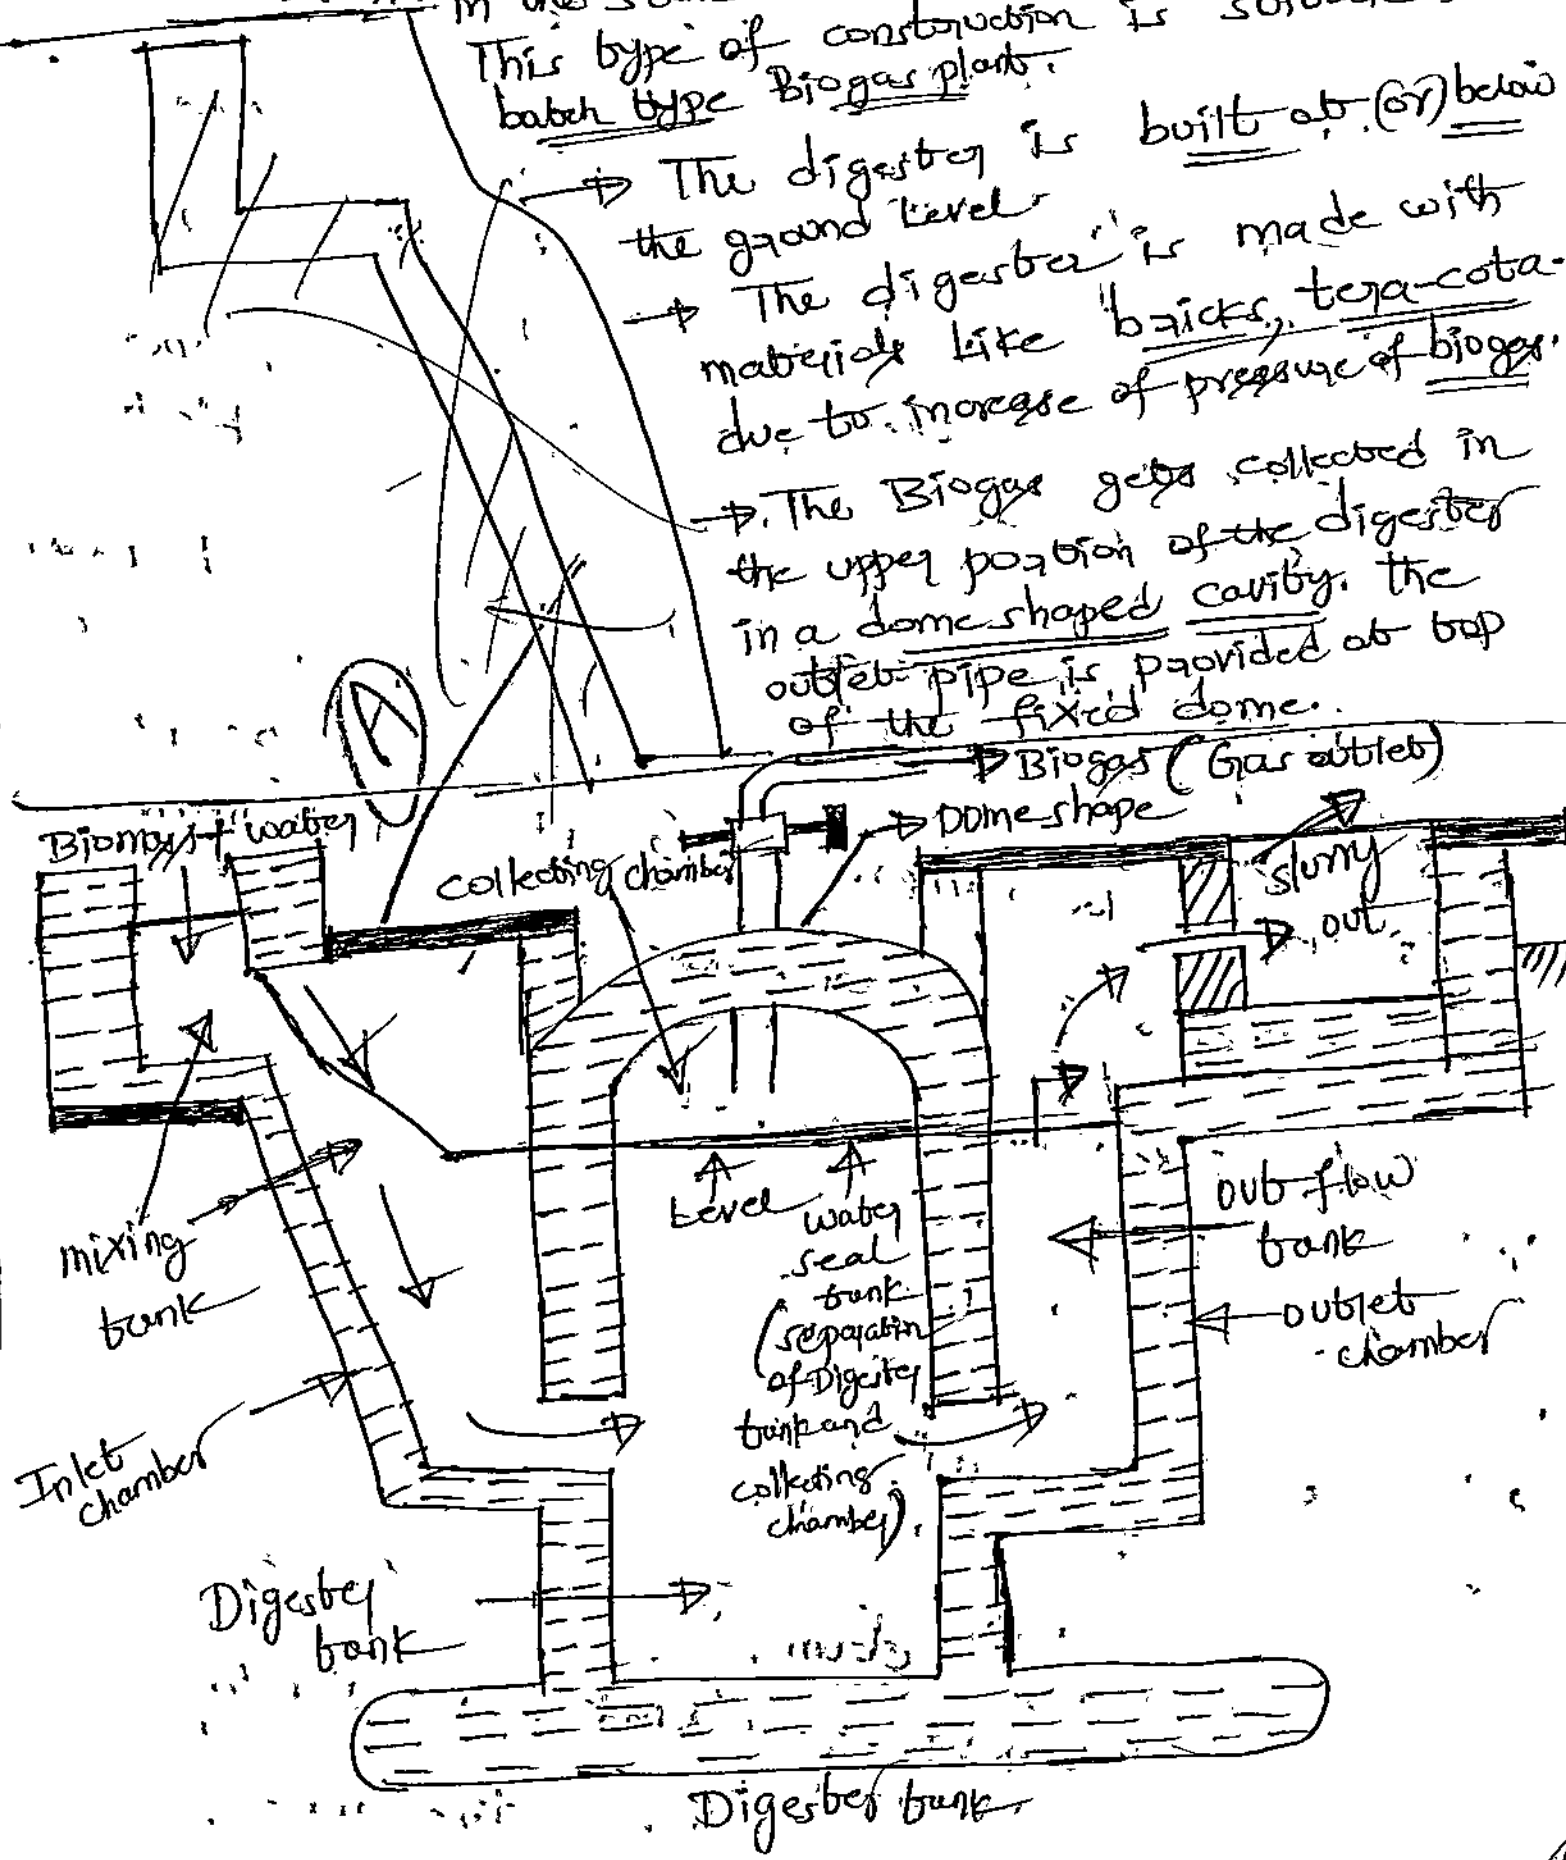 This type of construction is
batch type Biogas plant.
→ The digester is built at (or) below
the ground Level
→ The digester is made with
materials like bricks, tera-cota.
due to increase of pressure of biogas.
→ The Biogas gets collected in
the upper portion of the digester
in a dome shaped cavity. The
outlet pipe is provided at top
of the fixed dome.
A
Biogas (Gas outlet)
Biomass + water
Dome shape
collecting chamber
slurry
out
Level
water
seal
tank
(separation
of Digester
tank and
collecting
chamber)
out flow
tank
outlet
chamber
mixing
tank
Inlet
chamber
Digester
tank
Digester tank